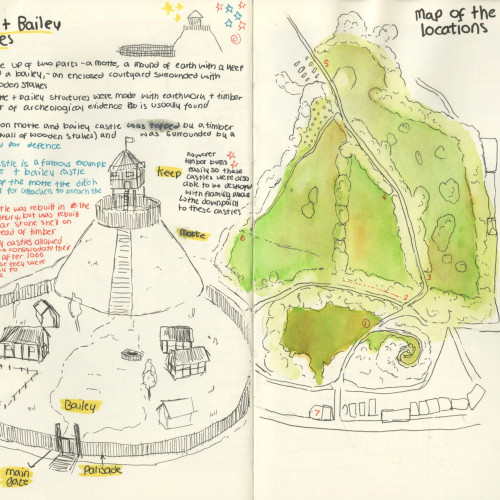 t & Bailey
es
e up of two parts - a motte, a mound of earth with a keep
d a bailey, - an enclosed courtyard surrounded with
ooden stakes
tte + bailey structures were made with earthwork + timber
of archeological evidence is usually found
on motte and bailey castle was topped by a timber
wall of wooden stakes) and was surrounded by a
for defence
astle is a famous example
e + bailey castle
of the motte the ditch
t for attackers to
stle was rebuilt in the
but was rebuilt
ar stone shell on
ead of timber
y castles allowed
to consolidate their
after 1066
se they were
to
however
timber burns
easily so these
castles were also
able to be destroyed
with flaming
the downfall
to these castles
Keep
Motte
Bailey
main
gate
Palisade
map of the
locations
5
4
6
3
2
1
7